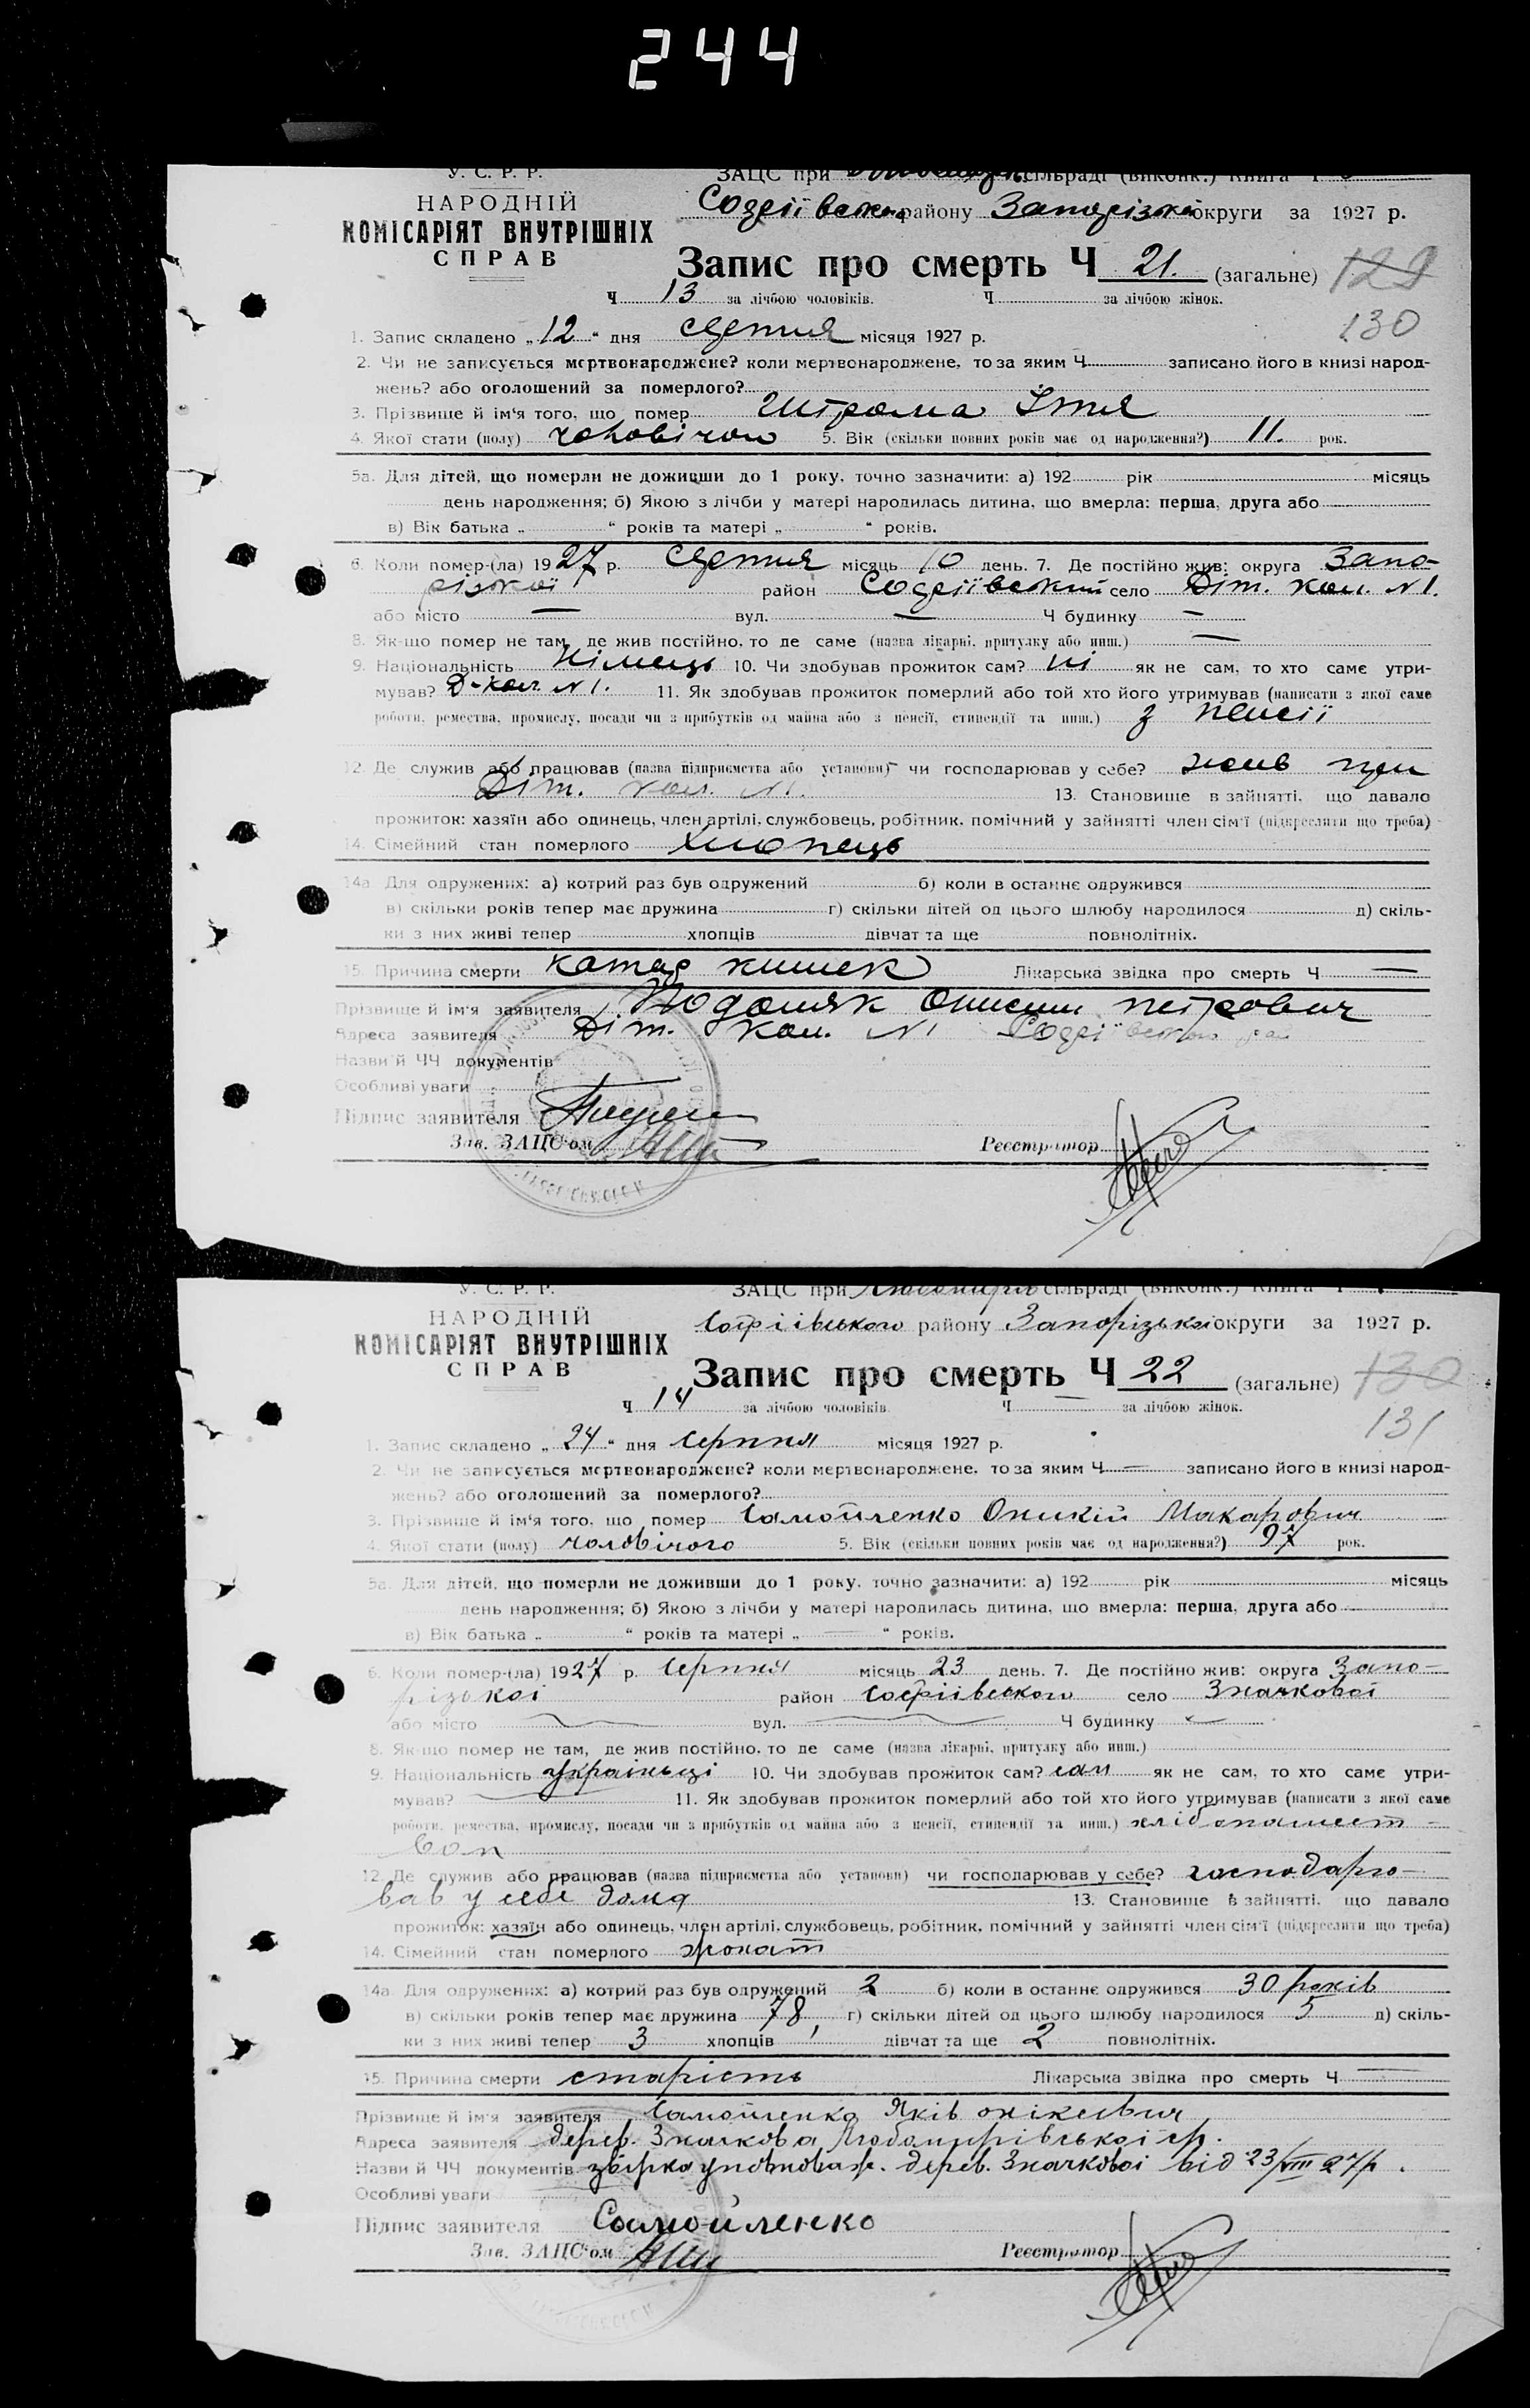 244
У. С. Р. Р.
НАРОДНІЙ
КОМІСАРІЯТ ВНУТРІШНІХ
СПРАВ
ЗАЦС при сільраді (виконк.) Книга
Софіївськ району Запорізької округи за 1927 р.
Запис про смерть Ч 21. (загальне) 129
Ч 13 за лічбою чоловіків. Ч за лічбою жінок.
130
1. Запис складено „12" дня серпня місяця 1927 р.
2. Чи не записується мертвонароджене? коли мертвонароджене, то за яким Ч записано його в книзі народ-
жень? або оголошений за померлого?
3. Прізвище й ім'я того, що помер Штрома
4. Якої стати (полу) чоловічої 5. Вік (скільки повних років має од народження?) 11. рок.
5а. Для дітей, що померли не доживши до 1 року, точно зазначити: а) 192 рік місяць
день народження; б) Якою з лічби у матері народилась дитина, що вмерла: перша, друга або
в) Вік батька „ " років та матері „ " років.
6. Коли помер-(ла) 1927 р. серпня місяць 10 день. 7. Де постійно жив: округа Запо-
різької район Софіївський село Діт. кол. №1.
або місто — вул. — Ч будинку —
8. Як-що помер не там, де жив постійно, то де саме (назва лікарні, притулку або инш.) —
9. Національність Німець 10. Чи здобував прожиток сам? ні як не сам, то хто саме утри-
мував? Д-кол. №1. 11. Як здобував прожиток померлий або той хто його утримував (написати з якої саме
роботи, ремества, промислу, посади чи з прибутків од майна або з пенсії, стипендії та инш.) з пенсії
12. Де служив або працював (назва підприємства або установи) чи господарював у себе? жив при
Діт. кол. №1. 13. Становище в зайнятті, що давало
прожиток: хазяїн або одинець, член артілі, службовець, робітник, помічний у зайнятті член сім'ї (підкреслити що треба)
14. Сімейний стан померлого хлопець
14а. Для одружених: а) котрий раз був одружений б) коли в останнє одружився
в) скільки років тепер має дружина г) скільки дітей од цього шлюбу народилося д) скіль-
ки з них живі тепер хлопців дівчат та ще повнолітніх.
15. Причина смерти катар кишек Лікарська звідка про смерть Ч —
Прізвище й ім'я заявителя Онисим Петрович
Адреса заявителя Діт. кол. №1 Софіївськ
Назви й ЧЧ документів
Особливі уваги
Підпис заявителя
Зав. ЗАЦС'ом Реєстратор
У. С. Р. Р.
НАРОДНІЙ
КОМІСАРІЯТ ВНУТРІШНІХ
СПРАВ
ЗАЦС при сільраді (виконк.) Книга
Софіівського району Запорізької округи за 1927 р.
Запис про смерть Ч 22 (загальне) 130
Ч 14 за лічбою чоловіків. Ч — за лічбою жінок.
131
1. Запис складено „24" дня серпня місяця 1927 р.
2. Чи не записується мертвонароджене? коли мертвонароджене, то за яким Ч — записано його в книзі народ-
жень? або оголошений за померлого?
3. Прізвище й ім'я того, що помер Самойленко Оникій Макарович
4. Якої стати (полу) чоловічого 5. Вік (скільки повних років має од народження?) 97 рок.
5а. Для дітей, що померли не доживши до 1 року, точно зазначити: а) 192 рік місяць
день народження; б) Якою з лічби у матері народилась дитина, що вмерла: перша, друга або
в) Вік батька „ " років та матері „ — " років.
6. Коли помер-(ла) 1927 р. серпня місяць 23 день. 7. Де постійно жив: округа Запо-
різькоі район Софіівського село Значковоі
або місто вул. Ч будинку
8. Як-що помер не там, де жив постійно, то де саме (назва лікарні, притулку або инш.)
9. Національність україньці 10. Чи здобував прожиток сам? сам як не сам, то хто саме утри-
мував? 11. Як здобував прожиток померлий або той хто його утримував (написати з якої саме
роботи, ремества, промислу, посади чи з прибутків од майна або з пенсії, стипендії та инш.) хлібопашест-
вом
12. Де служив або працював (назва підприємства або установи) чи господарював у себе? господарю-
вав у себе дома 13. Становище в зайнятті, що давало
прожиток: хазяїн або одинець, член артілі, службовець, робітник, помічний у зайнятті член сім'ї (підкреслити що треба)
14. Сімейний стан померлого жонат
14а. Для одружених: а) котрий раз був одружений 2 б) коли в останнє одружився 30 років
в) скільки років тепер має дружина 78, г) скільки дітей од цього шлюбу народилося 5 д) скіль-
ки з них живі тепер 3 хлопців дівчат та ще 2 повнолітніх.
15. Причина смерти старість Лікарська звідка про смерть Ч —
Прізвище й ім'я заявителя Самойленко Яків Онікеевич
Адреса заявителя дерев. Значкова Любомирівськоі ср.
Назви й ЧЧ документів дерев. Значковоі від 23/VIII 27 р.
Особливі уваги
Підпис заявителя Самойленко
Зав. ЗАЦС'ом Реєстратор